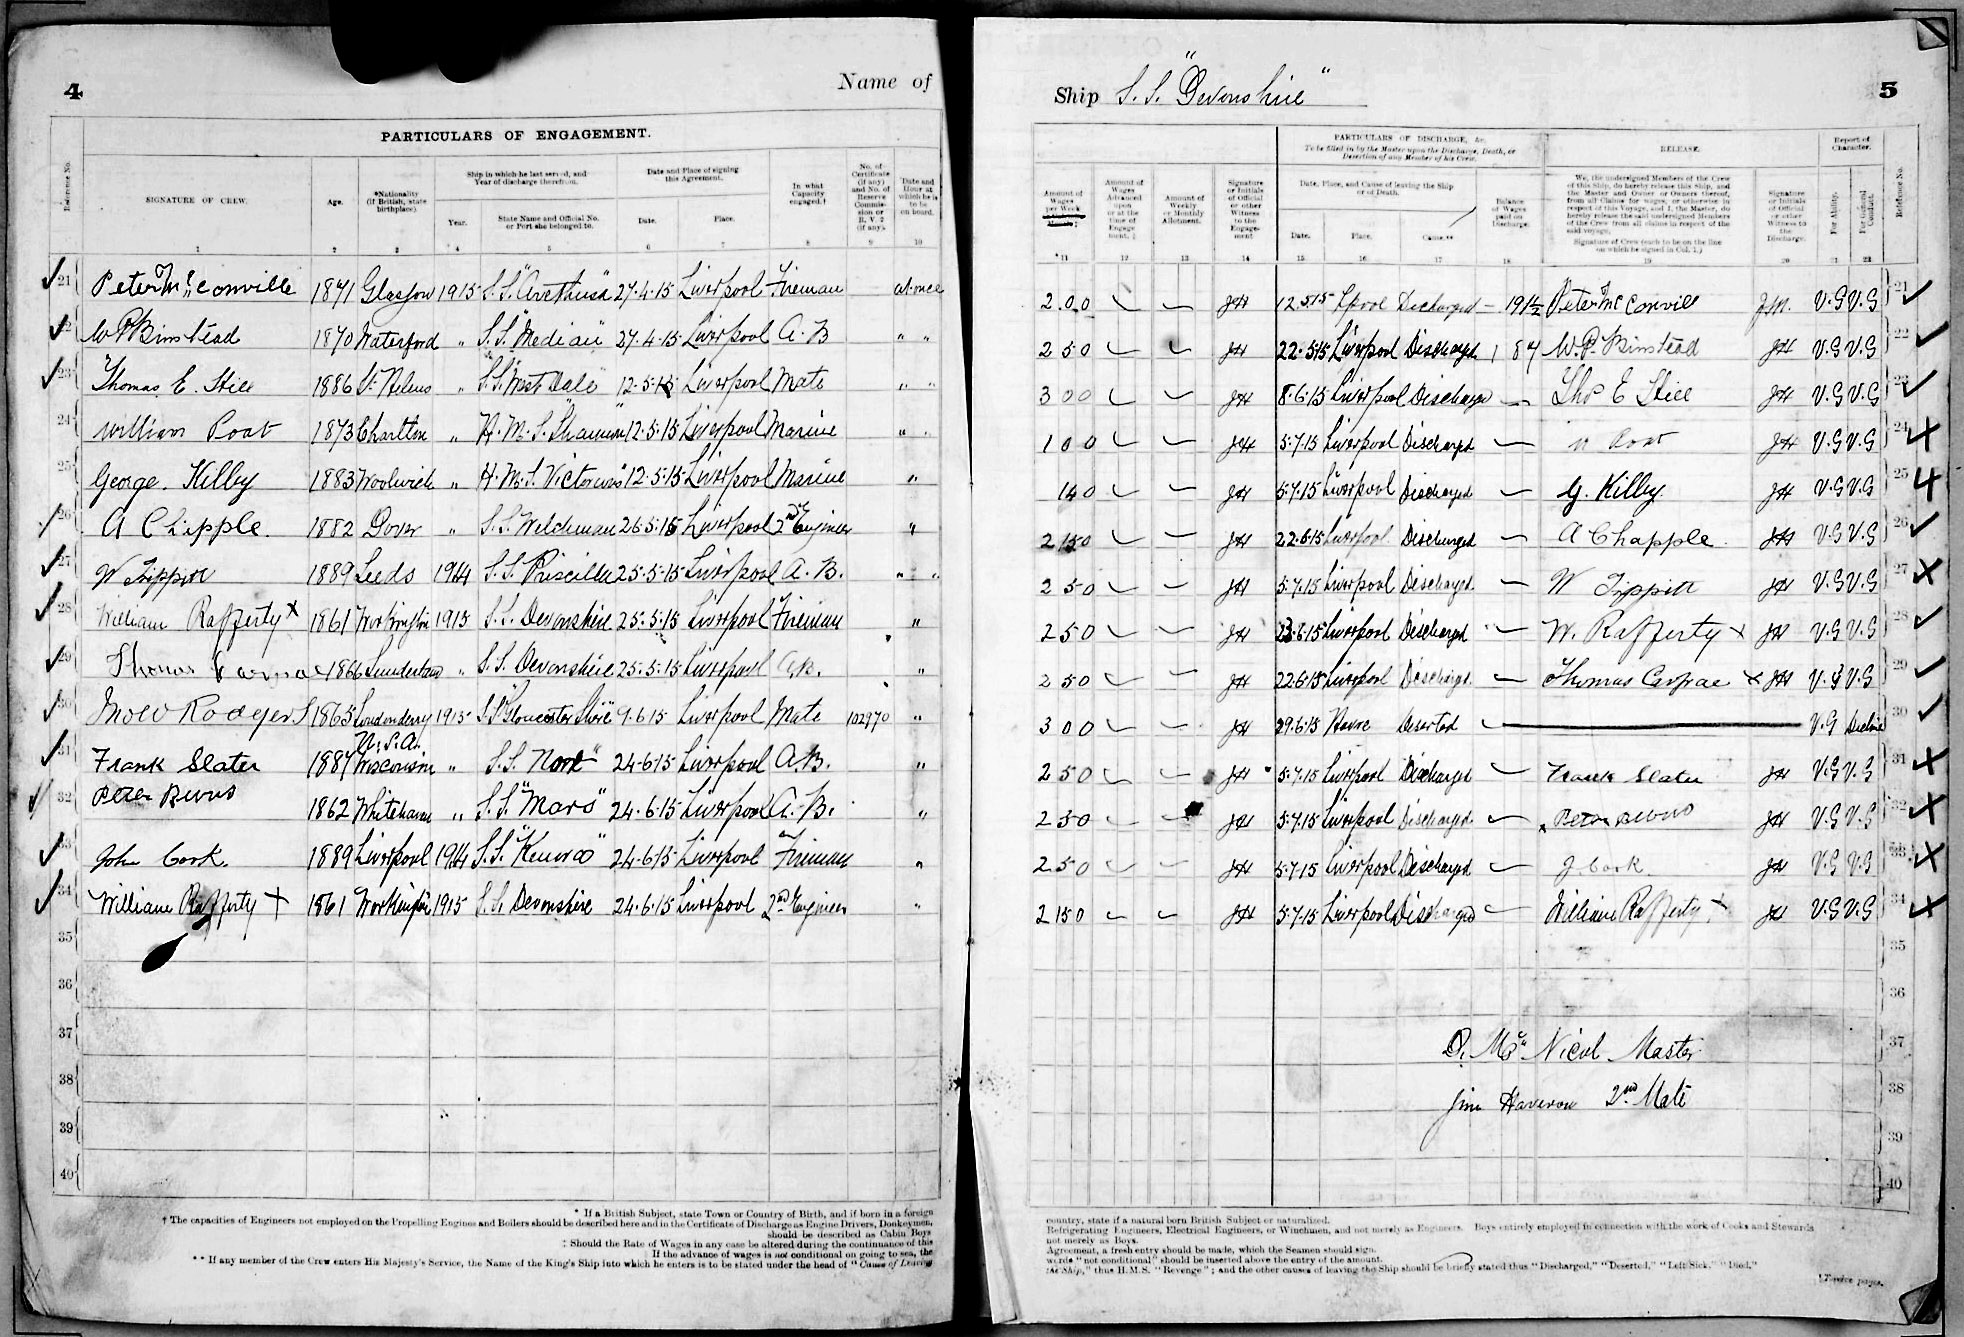 4
Name of
PARTICULARS OF ENGAGEMENT.
Reference No.
SIGNATURE OF CREW.
Age.
*Nationality (If British, state birthplace).
Ship in which he last served, and Year of discharge therefrom.
Year.
State Name and Official No. or Port she belonged to.
Date and Place of signing this Agreement.
Date.
Place.
In what Capacity engaged.†
No. of Certificate (if any) and No. of Reserve Commission or R.V.2 (if any).
Date and Hour at which he is to be on board.
1 2 3 4 5 6 7 8 9 10
21 Peter McConville 1871 Glasgow 1915 S.S. "Arethusa" 27.4.15 Liverpool Fireman at once
22 W P Binstead 1870 Waterford " S.S. "Median" 27.4.15 Liverpool A.B " "
23 Thomas E. Still 1886 St Helens " S.S. "West Dale" 12.5.15 Liverpool Mate " "
24 William Poat 1873 Charlton " H.M.S. "Shannon" 12.5.15 Liverpool Marine " "
25 George Kilby 1883 Woolwich " H.M.S. Victorious 12.5.15 Liverpool Marine "
26 A Chipple 1882 Dover " S.S. Welshman 26.5.15 Liverpool 2nd Engineer "
27 W Tippitt 1889 Leeds 1914 S.S. Priscilla 25.5.15 Liverpool A.B. " "
28 William Rafferty x 1861 Workington 1915 S.S. Devonshire 25.5.15 Liverpool Fireman "
29 Thomas 1866 Sunderland " S.S. Devonshire 25.5.15 Liverpool A.B. "
30 Rodgers 1865 Londonderry 1915 S.S. "Gloucester Shire" 9.6.15 Liverpool Mate 102970 "
U.S.A.
31 Frank Slater 1887 Wisconsin " S.S. 24.6.15 Liverpool A.B. "
32 Peter Burns 1862 Whitehaven " S.S. "Mars" 24.6.15 Liverpool A.B. "
33 John Cook 1889 Liverpool 1914 S.S. 24.6.15 Liverpool Fireman "
34 William Rafferty x 1861 Workington 1915 S.S. Devonshire 24.6.15 Liverpool 2nd Engineer "
35
36
37
38
39
40
* If a British Subject, state Town or Country of Birth, and if born in a foreign
† The capacities of Engineers not employed on the Propelling Engines and Boilers should be described here and in the Certificate of Discharge as Engine Drivers, Donkeymen,
should be described as Cabin Boys
‡ Should the Rate of Wages in any case be altered during the continuance of this
If the advance of wages is not conditional on going to sea, the
** If any member of the Crew enters His Majesty's Service, the Name of the King's Ship into which he enters is to be stated under the head of "Cause of Leaving
Ship S.S. "Devonshire"
5
PARTICULARS OF DISCHARGE, &c.
To be filled in by the Master upon the Discharge, Death, or Desertion of any Member of his Crew.
RELEASE.
Report of Character.
Amount of Wages per Week
Amount of Wages Advanced upon or at the time of Engagement.‡
Amount of Weekly or Monthly Allotment.
Signature or Initials of Official or other Witness to the Engagement
Date, Place, and Cause of leaving the Ship or of Death.
Date.
Place.
Cause.**
Balance of Wages paid on Discharge
We, the undersigned Members of the Crew of this Ship, do hereby release this Ship, and the Master and Owner or Owners thereof, from all Claims for wages, or otherwise in respect of this Voyage, and I, the Master, do hereby release the said undersigned Members of the Crew from all claims in respect of the said voyage.
Signature of Crew (each to be on the line on which he signed in Col. 1.)
Signature or Initials of Official or other Witness to the Discharge.
For Ability.
For General Conduct.
Reference No.
*11 12 13 14 15 16 17 18 19 20 21 22
2.0.0 JH 12.5.15 Lpool Discharged – 19 1½ Peter McConvill J.M. V.G V.G 21
2 5 0 JH 22.5.15 Liverpool Discharged 1 8 7 W. P. Binstead JH V.G V.G 22
3 0 0 JH 8.6.15 Liverpool Discharged Thos E Still JH V.G V.G 23
1 0 0 JH 5.7.15 Liverpool Discharged W Poat JH V.G V.G 24
1 4 0 JH 5.7.15 Liverpool Discharged G. Kilby JH V.G V.G 25
2 15 0 JH 22.6.15 Liverpool Discharged A Chapple JH V.G V.G 26
2 5 0 JH 5.7.15 Liverpool Discharged W Tippitt JH V.G V.G 27
2 5 0 JH 23.6.15 Liverpool Discharged W. Rafferty x JH V.G V.G 28
2 5 0 JH 22.6.15 Liverpool Discharged Thomas Carfrae x JH V.G V.G 29
3 0 0 JH 29.6.15 Havre Deserted V.G Decline 30
2 5 0 JH 5.7.15 Liverpool Discharged Frank Slater JH V.G V.G 31
2 5 0 JH 5.7.15 Liverpool Discharged Peter Burns JH V.G V.G 32
2 5 0 JH 5.7.15 Liverpool Discharged J Cook JH V.G V.G 33
2 15 0 JH 5.7.15 Liverpool Discharged William Rafferty x JH V.G V.G 34
35
36
D. McNicol Master 37
Jim Haveron 2nd Mate 38
39
40
country, state if a natural born British Subject or naturalized.
Refrigerating Engineers, Electrical Engineers, or Winchmen, and not merely as Engineers. Boys entirely employed in connection with the work of Cooks and Stewards
not merely as Boys.
Agreement, a fresh entry should be made, which the Seamen should sign.
words "not conditional" should be inserted above the entry of the amount.
Ship," thus H.M.S. "Revenge"; and the other causes of leaving the Ship should be briefly stated thus "Discharged," "Deserted," "Left Sick," "Died,"
Twelve pages.